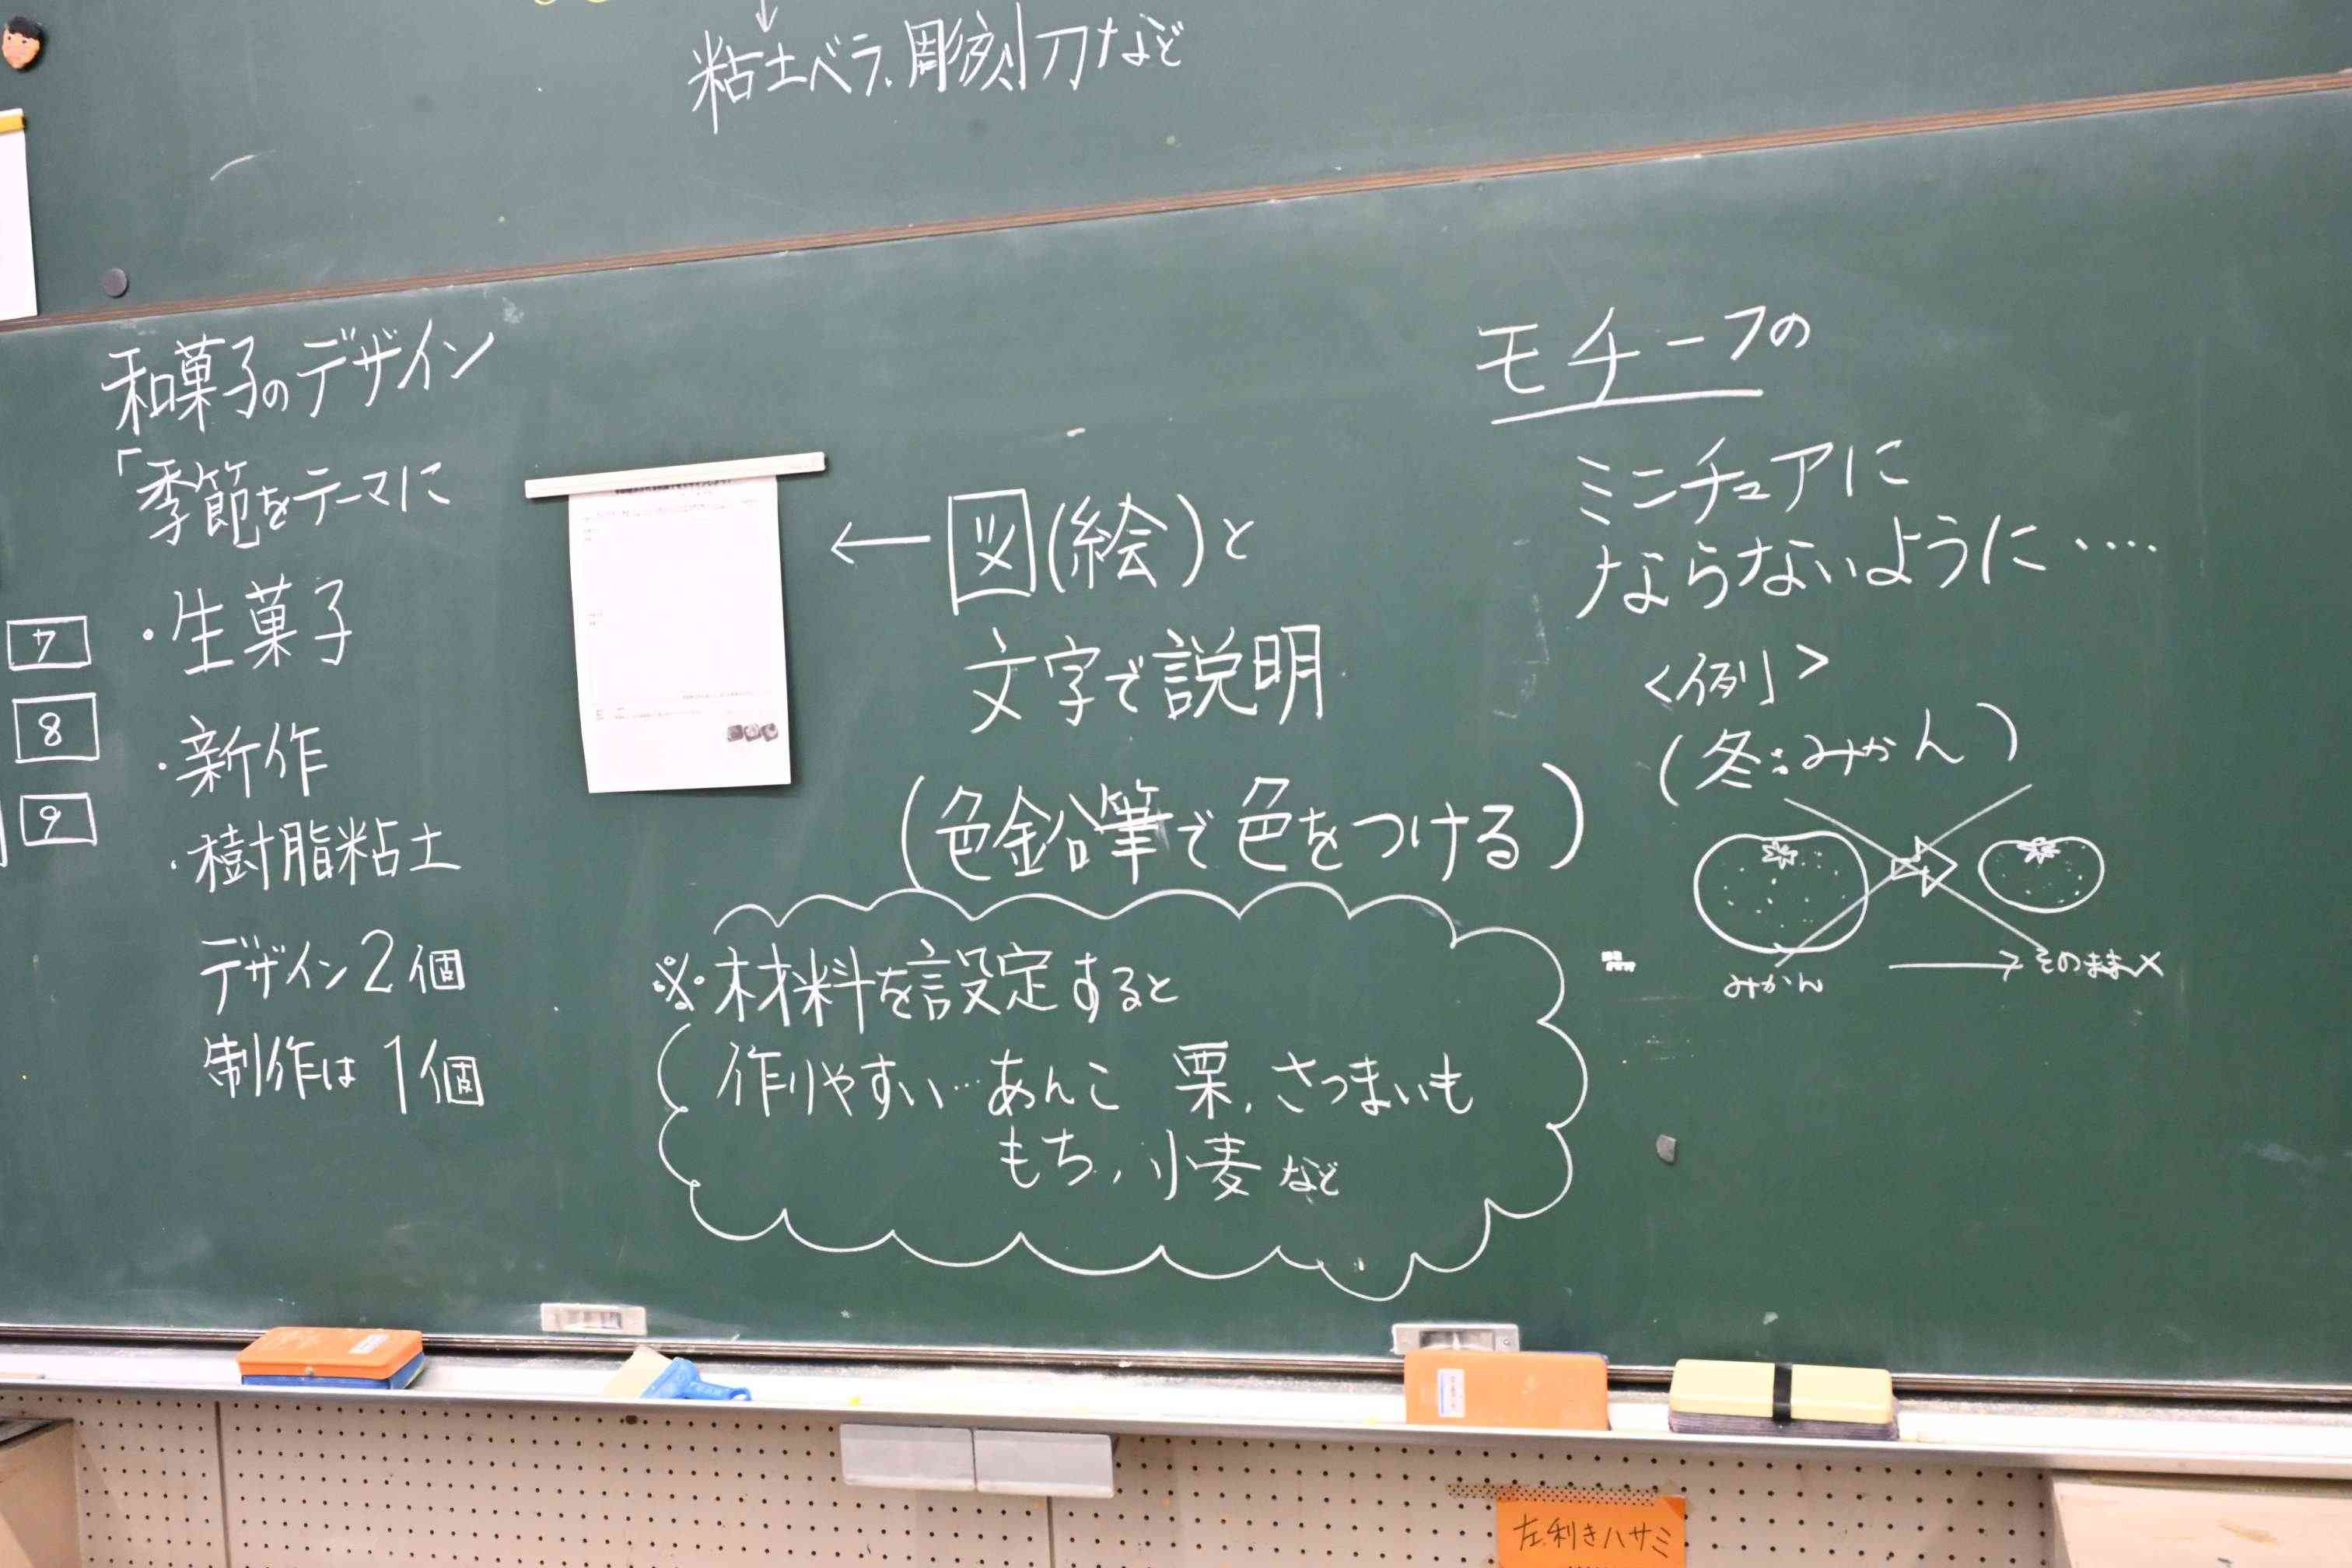 粘土ベラ、彫刻刀など
和菓子のデザイン
「季節をテーマに
・生菓子
・新作
・樹脂粘土
デザイン2個
制作は1個
7
8
9
←図(絵)と
文字で説明
(色鉛筆で色をつける)
※材料を設定すると
作りやすい…あんこ 栗、さつまいも
もち、小麦など
モチーフの
ミニチュアに
ならないように‥‥
<例>
(冬:みかん)
みかん → そのまま×
左利きハサミ